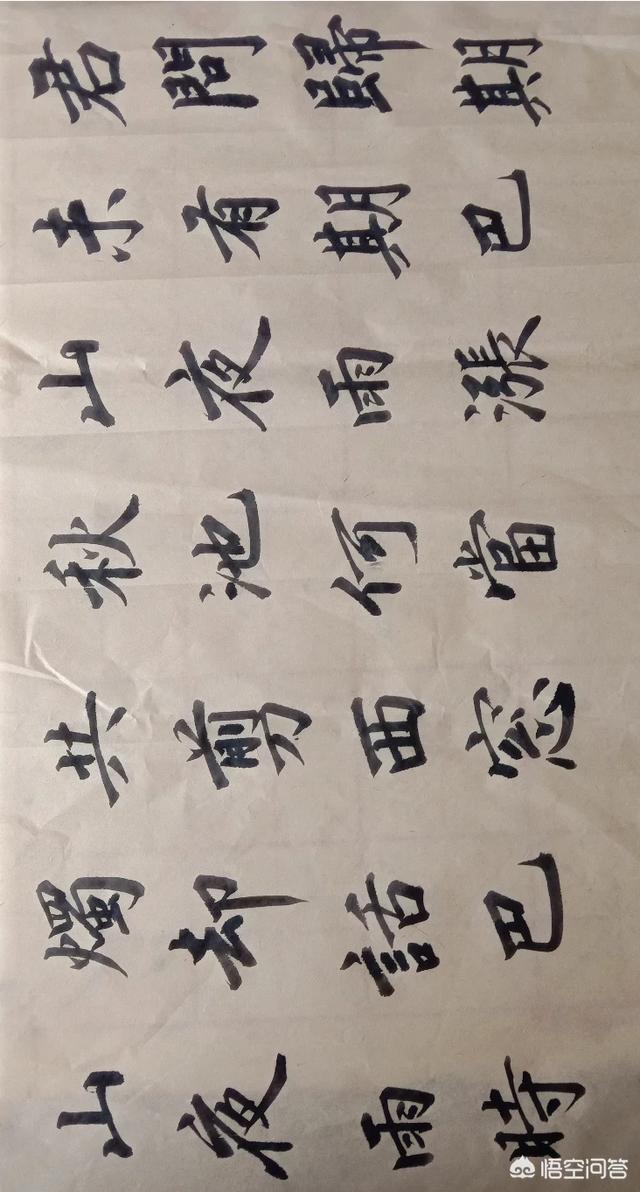 君問歸期
未有期巴
山夜雨漲
秋池何當
共剪西窓
燭却話巴
山夜雨時
悟空问答